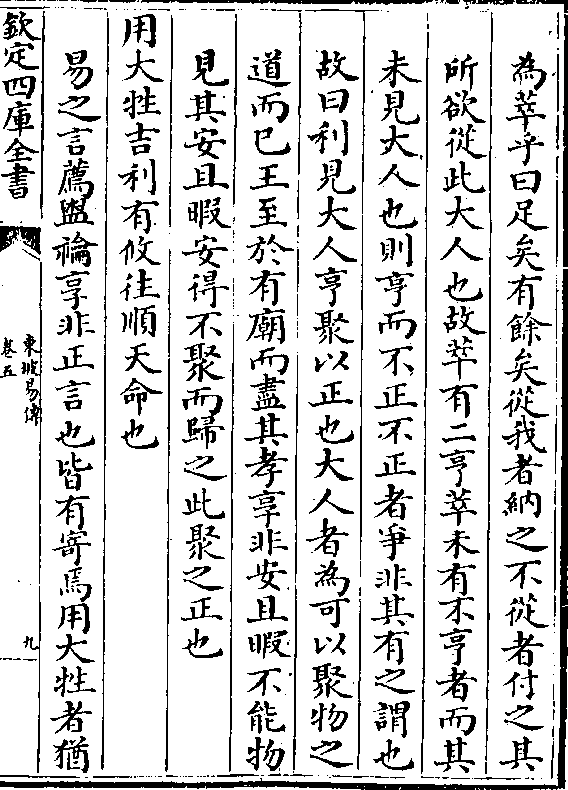 為萃乎曰足矣有餘矣從我者納之不從者付之其
所欲從此大人也故萃有二亨萃未有不亨者而其
未見大人也則亨而不正不正者爭非其有之謂也
故曰利見大人亨聚以正也大人者為可以聚物之
道而已王至於有廟而盡其孝享非安且暇不能物
見其安且暇安得不聚而歸之此聚之正也
用大牲吉利有攸往順天命也
易之言薦盥禴享非正言也皆有寄焉用大牲者猶
欽定四庫全書
東坡易傳
卷五
九